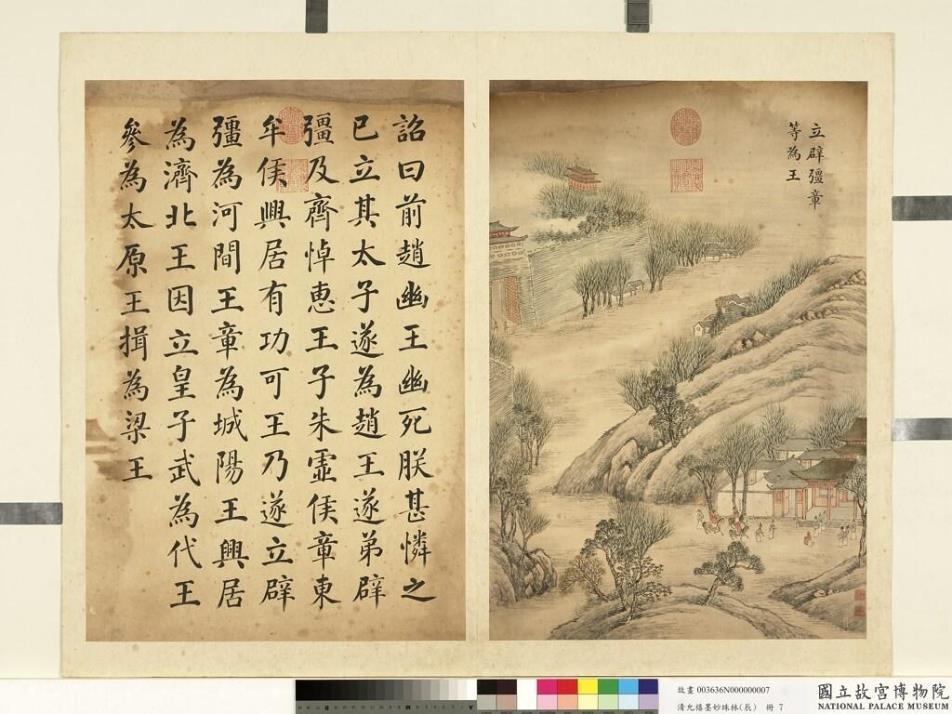 立辟彊章
等為王
詔曰前趙幽王幽死朕甚憐之
已立其太子遂為趙王遂弟辟
彊及齊悼惠王子朱虛侯章東
牟侯興居有功可王乃遂立辟
彊為河間王章為城陽王興居
為濟北王因立皇子武為代王
參為太原王揖為梁王
故畫 003636N000000007
清允禧墨妙珠林(辰) 冊 7
國立故宮博物院
NATIONAL PALACE MUSEUM